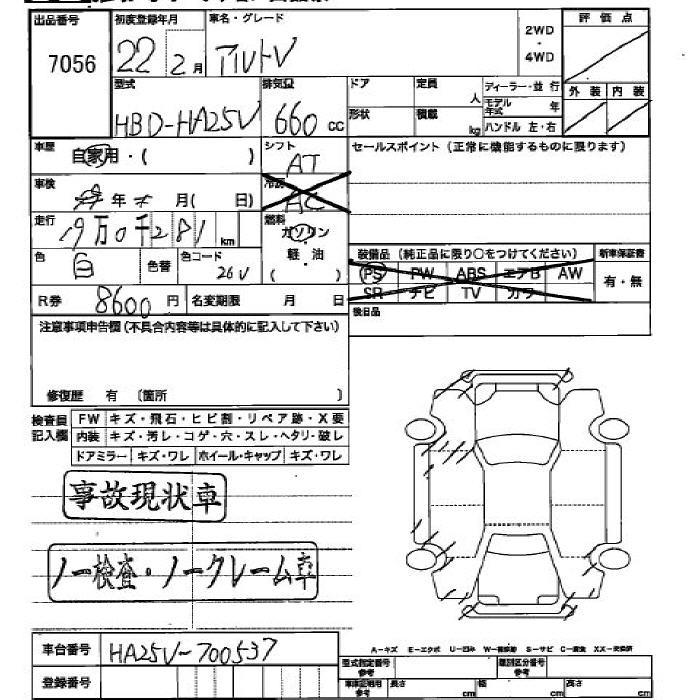 出品番号 初度登録年月 車名・グレード 2WD・4WD 評価点
7056 22 2月 アルトV
型式 排気量 ドア 定員 人 ディーラー・並 行 外装 内装
HBD-HA25V 660 cc 形状 積載 kg モデル年式 年 ハンドル 左・右
車歴 自家用・( ) シフト AT セールスポイント(正常に機能するものに限ります)
車検 年 月( 日) 冷房 AC
走行 19万0千281 km 燃料 ガソリン・軽・油 ( )
装備品(純正品に限り○をつけてください) 新車保証書
色 白 色替 色コード 26V PS PW ABS エアB AW 有・無
SR ナビ TV カワ
R券 8600円 名変期限 月 日 後日品
注意事項申告欄(不具合内容等は具体的に記入して下さい)
修復歴 有 〔箇所 〕
検査員記入欄 FW キズ・飛石・ヒビ割・リペア跡・X要
内装 キズ・汚レ・コゲ・穴・スレ・ヘタリ・破レ
ドアミラー キズ・ワレ ホイール・キャップ キズ・ワレ
事故現状車
ノー検査・ノークレーム車
車台番号 HA25V-700537
A-キズ E-エクボ U-凹み S-サビ C-腐食 XX-交換済
型式指定番号 参考 類別区分番号 参考
登録番号 参考 長さ cm 幅 cm 高さ cm